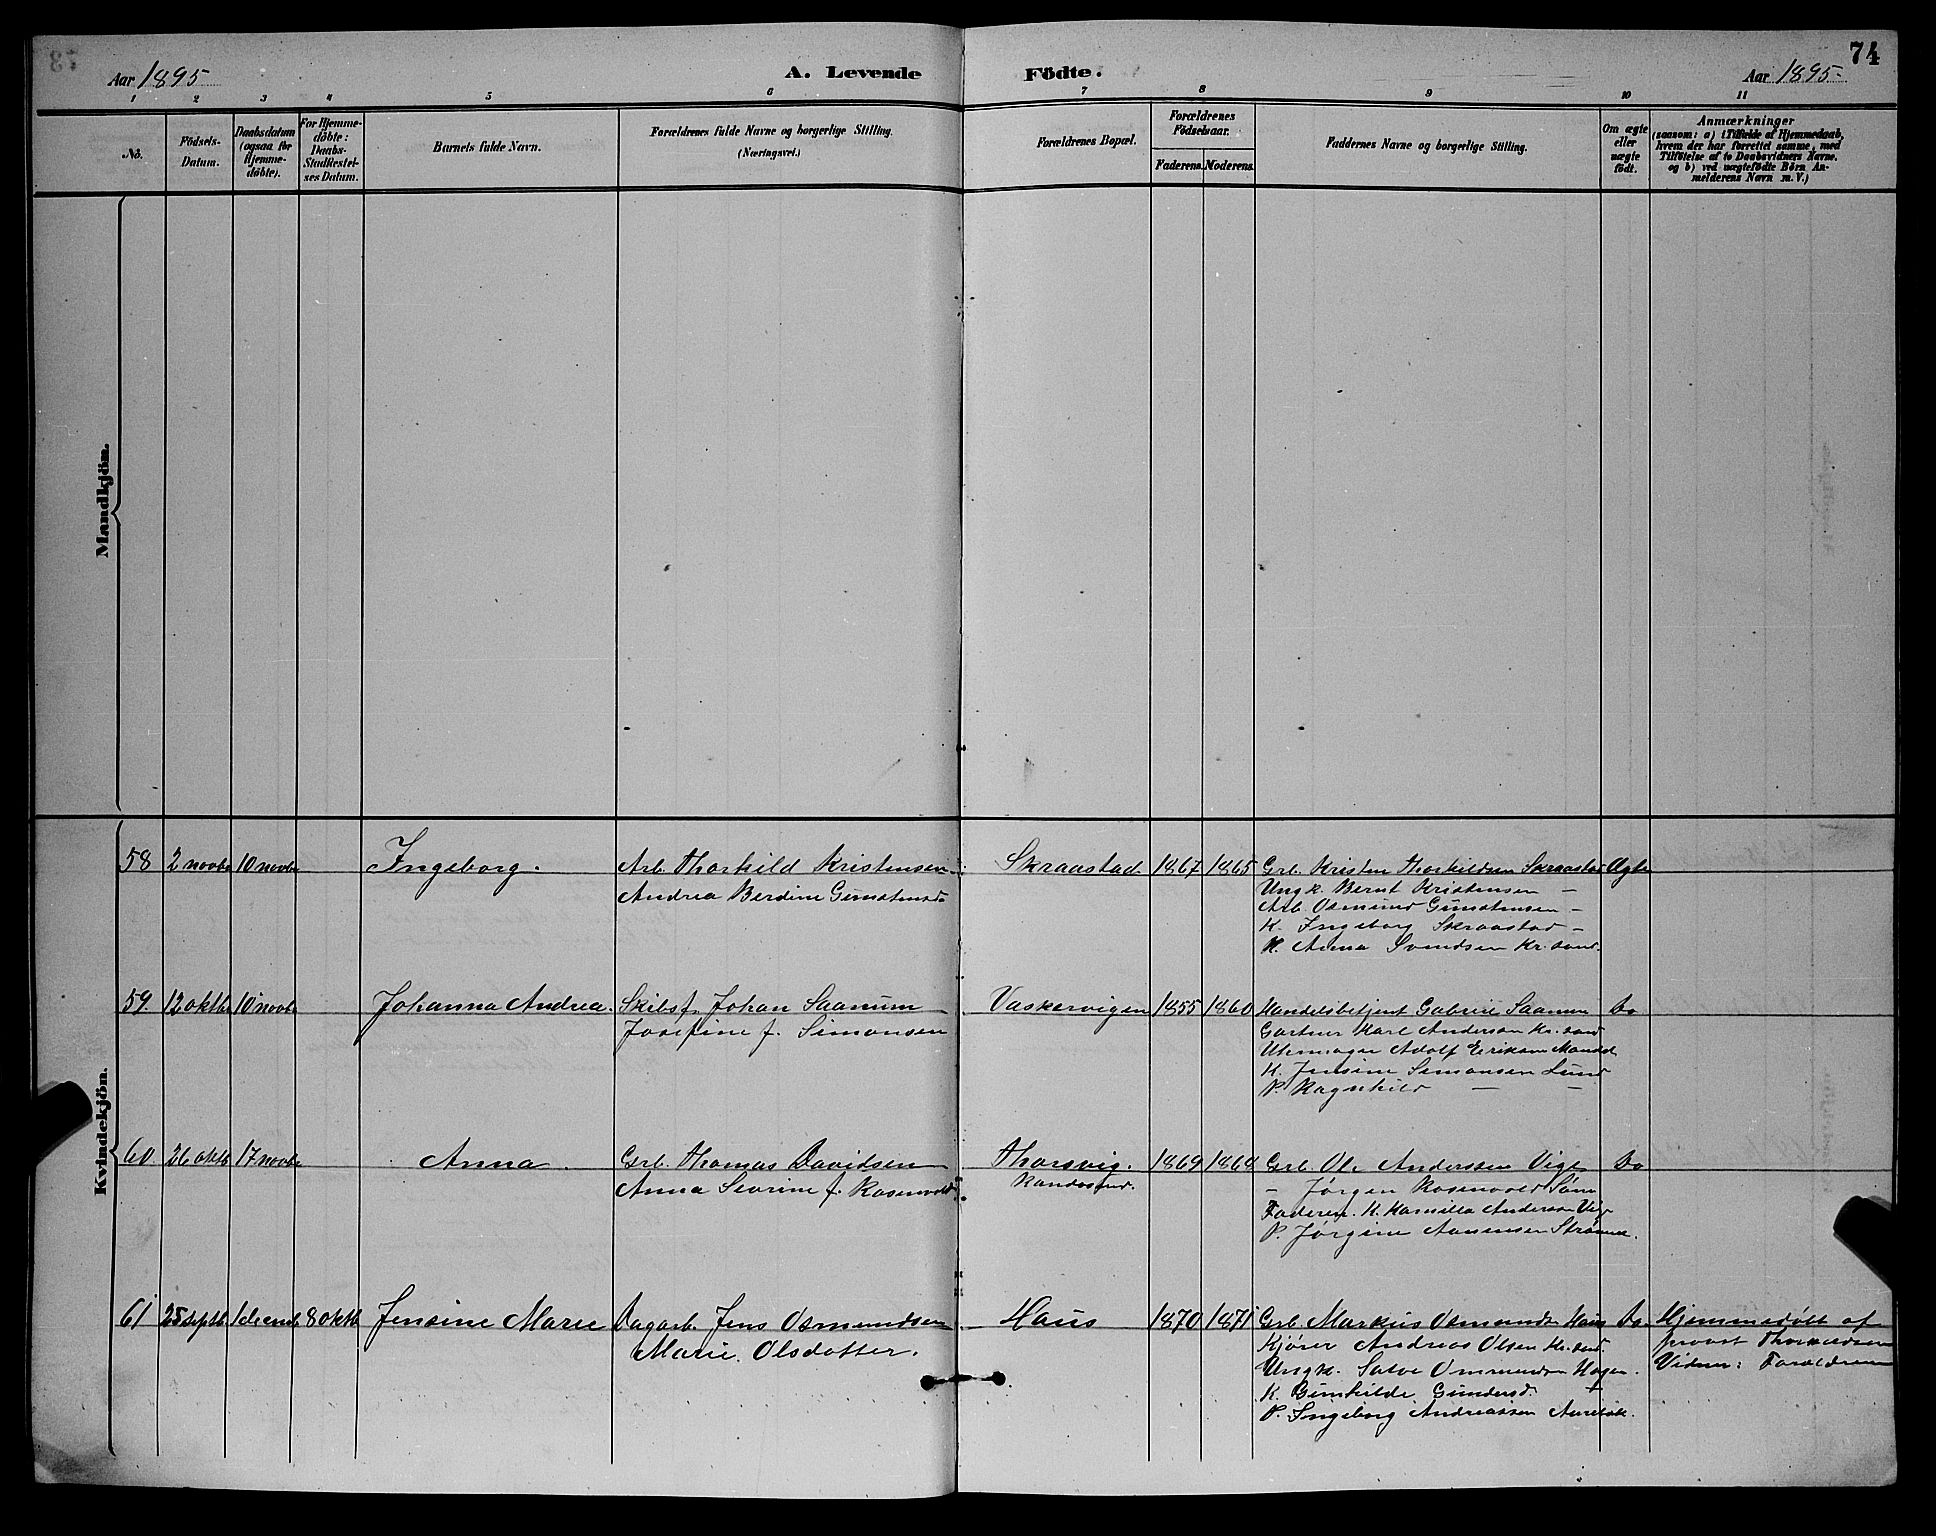 74
Aar 1895
A. Levende
Födte.
Aar 1895.
1 2 3 4 5 6 7 8 9 10 11
No.
Födsels-
Datum.
Daabsdatum
(ogsaa for
Hjemme-
döbte).
For Hjemme-
döbte:
Daabs-
Stadfestel-
ses Datum.
Barnets fulde Navn.
Forældrenes fulde Navne og borgerlige Stilling.
(Næringsvei.)
Forældrenes Bopæl.
Forældrenes
Födselsaar.
Faderens. Moderens.
Faddernes Navne og borgerlige Stilling.
Om ægte
eller
uægte
födt.
Anmærkninger
(saasom: a) i Tilfælde af Hjemmedaab,
hvem der har forrettet samme, med
Tilföielse af to Daabsvidners Navne,
og b) ved uægtefödte Börn An-
melderens Navn m. V.)
Mandkjön.
Kvindekjön.
58 2 novbr 10 novbr Ingeborg. Arb. Thorkild Kristensen
Andrea Berdine Gunstensd.
Skraastad 1867 1865 Grb. Kristen Thorkildsen Skraastad Ægte
Ungk. Bernt Kristensen —
Arb. Osmund Gunstensen —
K. Ingeborg Skraastad —
K. Anna Svendsen Kr.sand.
59. 12 oktbr 10 novbr Johanna Andrea. Skibsf. Johan Saanum
Josefine f. Simonsen
Vaskervigen 1855 1860 Handelsbetjent Gabriel Saanum Do
Gartner Karl Andersen Kr.sand
Uhrmager Adolf Eriksen Mandal
K. Jensine Simonsen Lund
P. Ragnhild — —
60. 26 oktb 17 novbr Anna. Grb. Thomas Davidsen
Anna Severine f. Rosenvold
Thorsvig. 1869 1868 Grb. Ole Anderssen Vige Do
Randøsund.
— Jørgen Rosenvold Søm
Faderen. K. Kamilla Andersen Vige
P. Jørgine Aanensen Strømme.
61 25 septb. 1 decemb 8 oktb Jensine Marie Dagarb. Jens Osmundsen
Marie Olsdatter.
Haus 1870 1871 Grb. Markus Osmunds. Haus Do.
Kjører Andreas Olsen Kr.sand.
Ungk. Salve Ommundsen Hagen.
K. Gunhilde Gundersd. —
P. Ingeborg Andreassen
Hjemmedøbt af
provst Thorvaldsen
Vidner: Forældrene